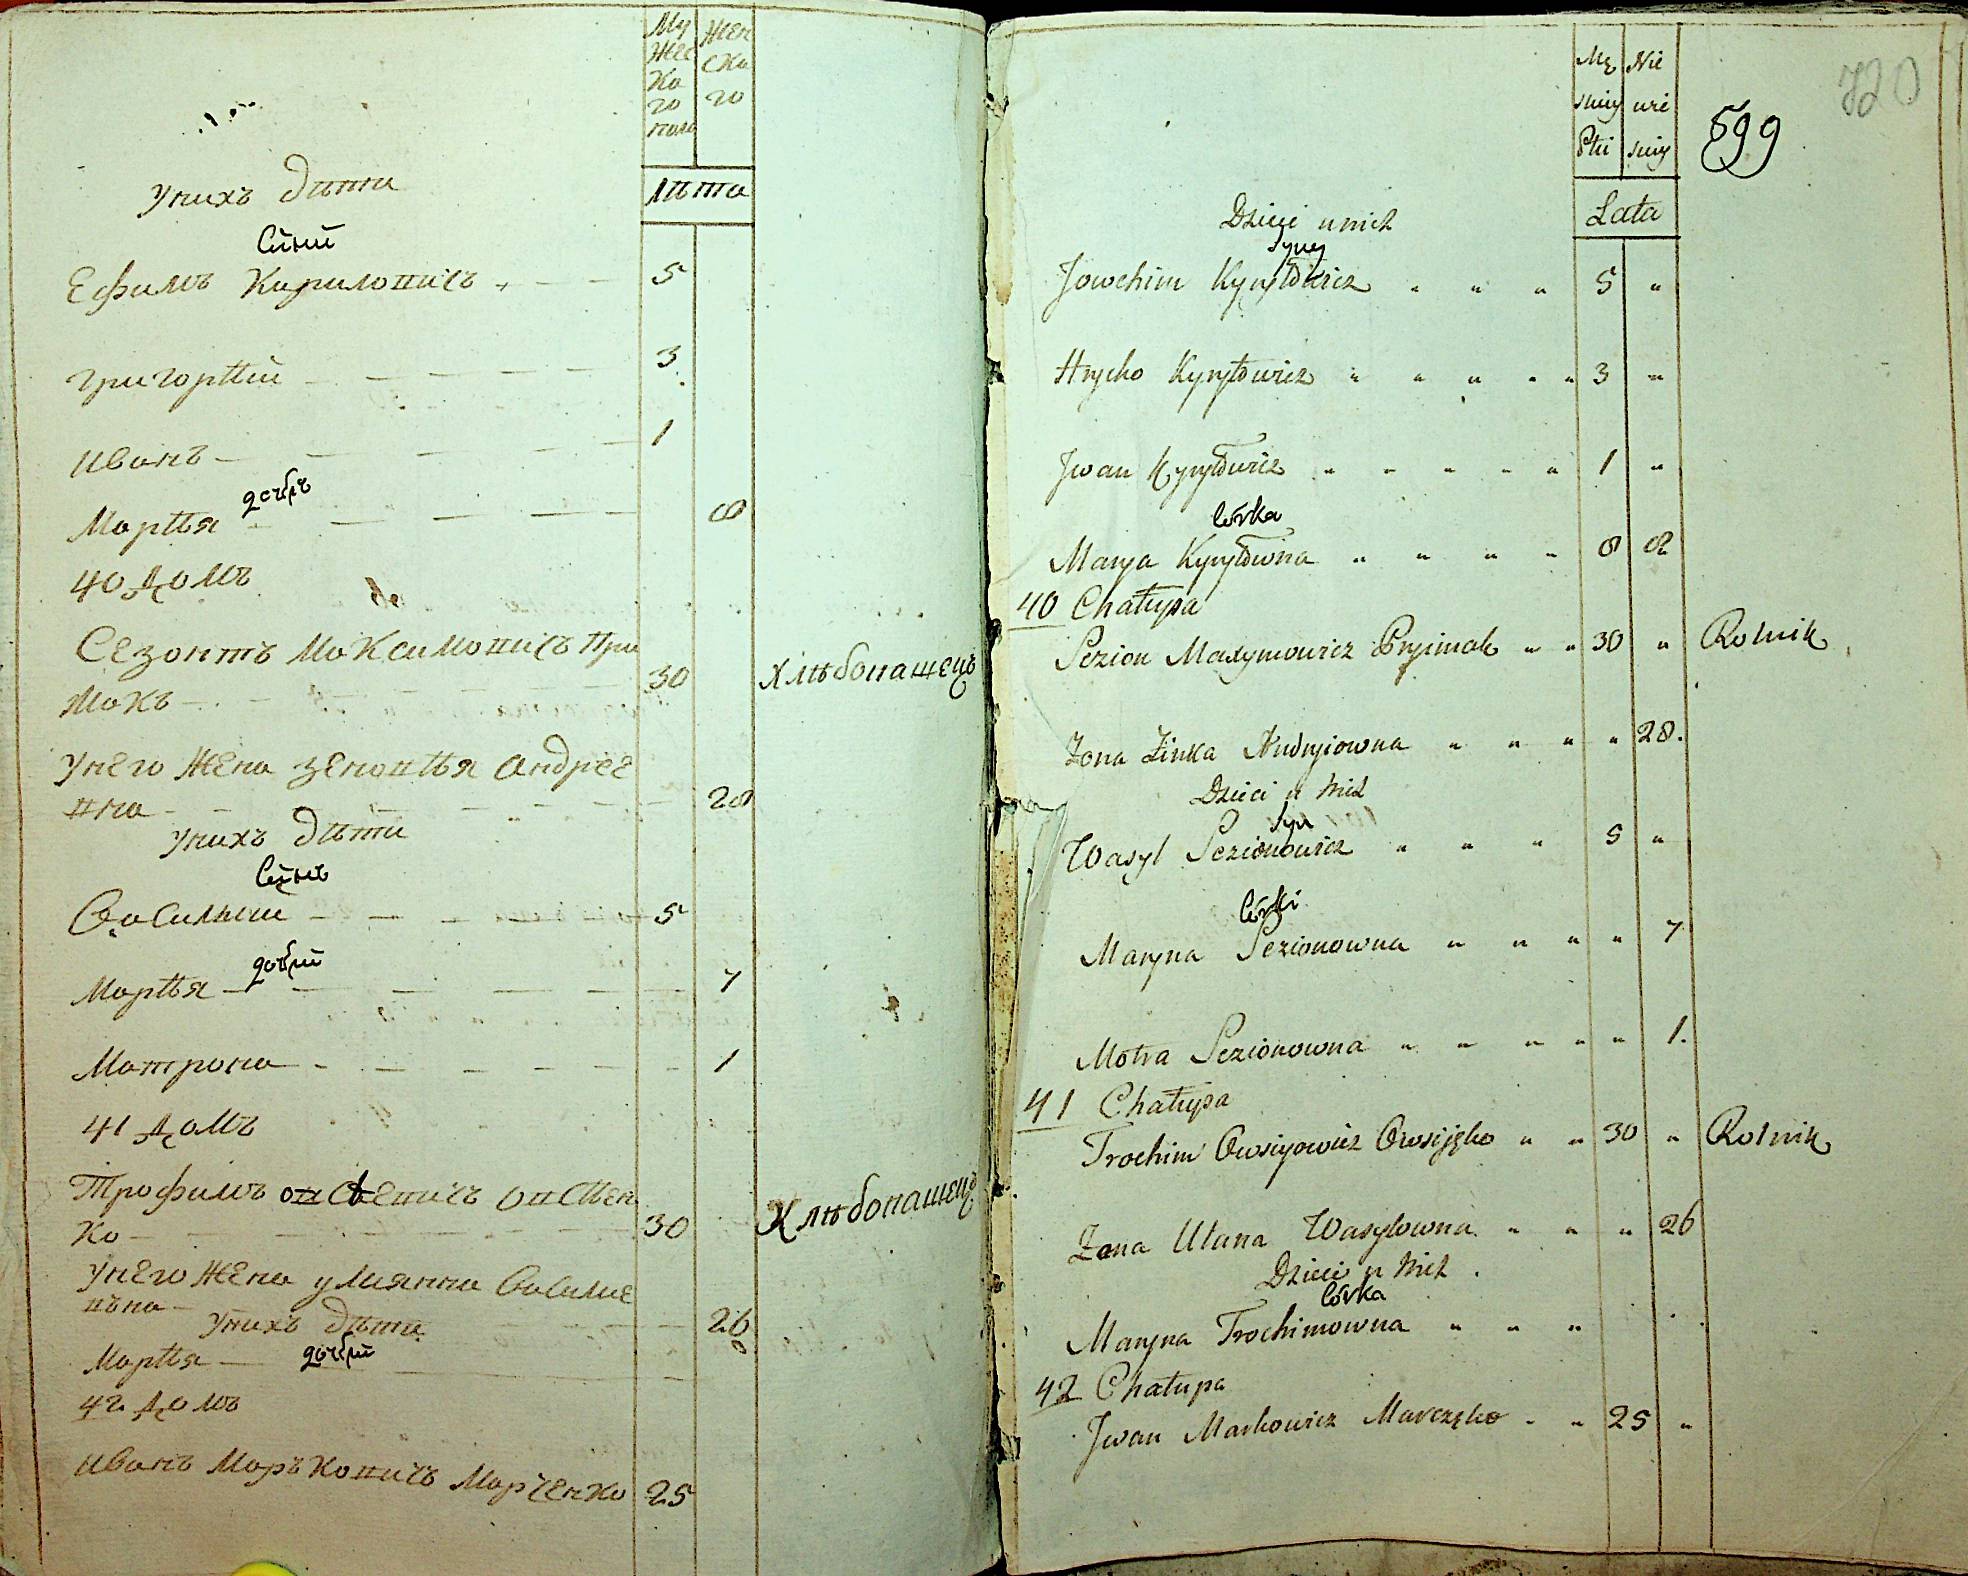 Му Жес Ко го полу
Жен ско го
Лѣта
У нихъ дѣти
Сины
Ефимъ Кириловичъ 5
Григорій 3
Иванъ 1
дочъ
Марія 8
40 Домъ
Сезонтъ Максимовичъ При
макъ 30 Хлѣбопашецъ
У него Жена Зеновія Андрее
вна 28
У нихъ дѣти
Синъ
Василій 5
дочери
Марія 7
Матрона 1
41 Домъ
Трофимъ Овсѣевичъ Овсѣен
ко 30 Хлѣбопашецъ
У него Жена Улиянна Василие
въна 26
У нихъ дѣти
Марія дочери
42 Домъ
Иванъ Марковичъ Марченко 25
720
599
Mę skiey Płci
Nie wie skiey
Lata
Dzieci u nich
Syny
Jowchim Kyryłowicz " " " 5 "
Hrycko Kyryłowicz " " " " " 3 "
Jwan Kyryłowicz " " " " " 1 "
Córka
Marya Kyryłowna " " " " 8 8
40 Chałupa
Sezion Maxymowicz Pryimak " " 30 " Rolnik
Żona Zinka Andryiowna " " " " 28.
Dzieci u Nich
Syn
Wasyl Sezionowicz " " " 5 "
Córki
Maryna Sezionowna " " " " 7
Motra Sezionowna " " " " " 1.
41 Chałupa
Trochim Owsiyowicz Owsijęko " " 30 " Rolnik
Żona Ulana Wasylowna " " " 26
Dzieci u Nich
Córka
Maryna Trochimowna " " "
42 Chałupa
Jwan Markowicz Marczęko " " 25 "